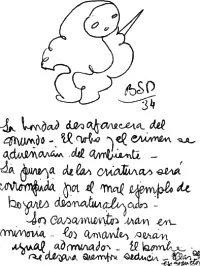 BSD
34
La bondad desaparecera del
mundo - El robo y el crimen se
adueñarán del ambiente -
La pureza de las criaturas será
corrompida por el mal ejemplo de
hogares desnaturalizados -
Los casamientos iran en
minoria - los amantes seran
igual admirados - El hombre
se dejara siempre seducir -